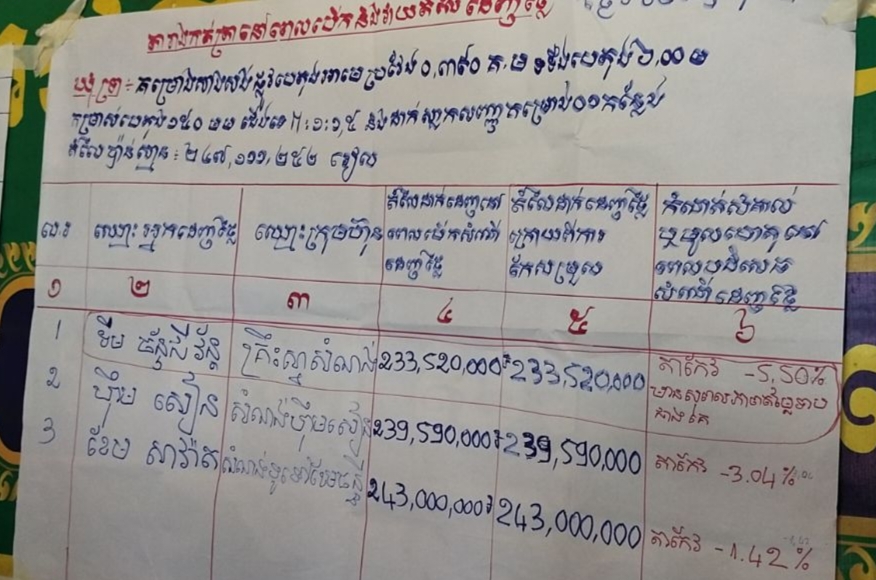 តារាងកត់ត្រានៅពេលបើកនិងវាយតម្លៃដេញថ្លៃ
ឃុំ ត្រា ៖ គម្រោងសាងសង់ផ្លូវបេតុងអាមេ ប្រវែង ០,៣៩០ គ.ម ទទឹងបេតុង ៦,០០ ម
កម្រាស់បេតុង ១៥០ មម ជើងទេ ១:១,៥ និងដាក់ស្លាកសញ្ញាគម្រោង ០១ កន្លែង
តំលៃប៉ាន់ស្មាន : ២៤៧,១១១,២៥២ រៀល
ល.រ
ឈ្មោះអ្នកដេញថ្លៃ
ឈ្មោះក្រុមហ៊ុន
តំលៃដាក់ដេញថ្លៃនៅ
ពេលបើកសំណើ
ដេញថ្លៃ
តំលៃដាក់ដេញថ្លៃ
ក្រោយពីការ
កែសម្រួល
កំណត់សំគាល់
ឬមូលហេតុនៅ
ពេលបដិសេធ
សំណើដេញថ្លៃ
១ ២ ៣ ៤ ៥ ៦
1 ទឹម ច័ន្ទសុីវ័ន្ត គ្រឹះស្ថានសំណង់ 233,520,000៛ 233,520,000 តាកែវ -5,50%
2 ហ៊ឹម សៀន សំណង់ហ៊ឹមសៀន 239,590,000៛ 239,590,000 តាកែវ -3.04%
3 ខែម សាវ៉ាត 243,000,000៛ 243,000,000 តាកែវ -1.42%